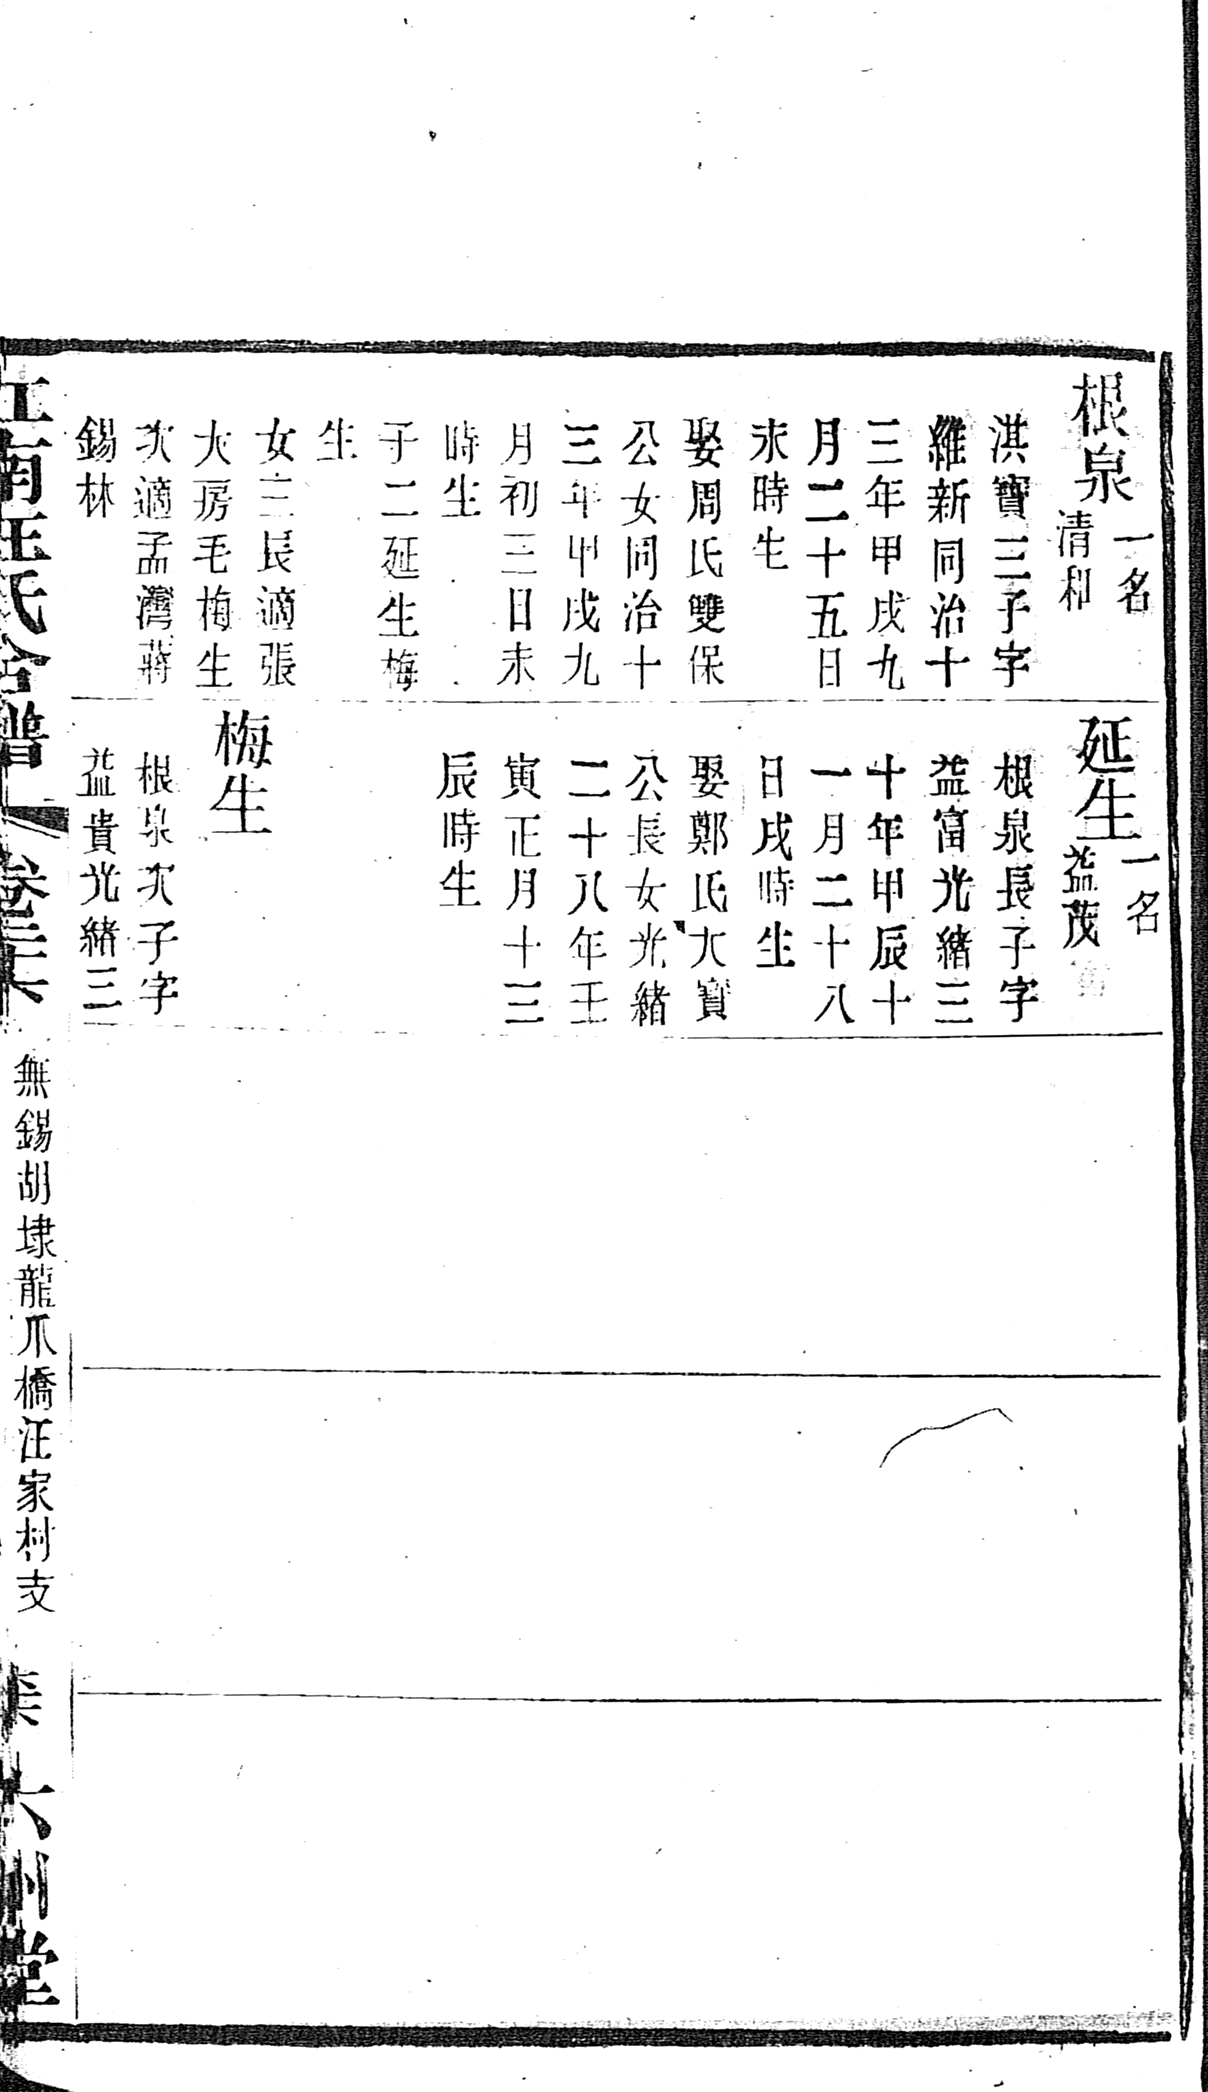 根泉
一名
清和
淇寶三子字
維新同治十
三年甲戌九
月二十五日
未時生
娶周氏雙保
公女同治十
三年甲戌九
月初三日未
時生
子二延生梅
生
女三長適張
大房毛梅生
次適孟灣蔣
錫林
延生
一名
益茂
根泉長子字
益富光緒三
十年甲辰十
一月二十八
日戌時生
娶鄭氏大寶
公長女光緒
二十八年壬
寅正月十三
辰時生
梅生
根泉次子字
益貴光緒三
江南汪氏合譜
卷三六
無錫胡埭龍爪橋汪家村支
六州堂